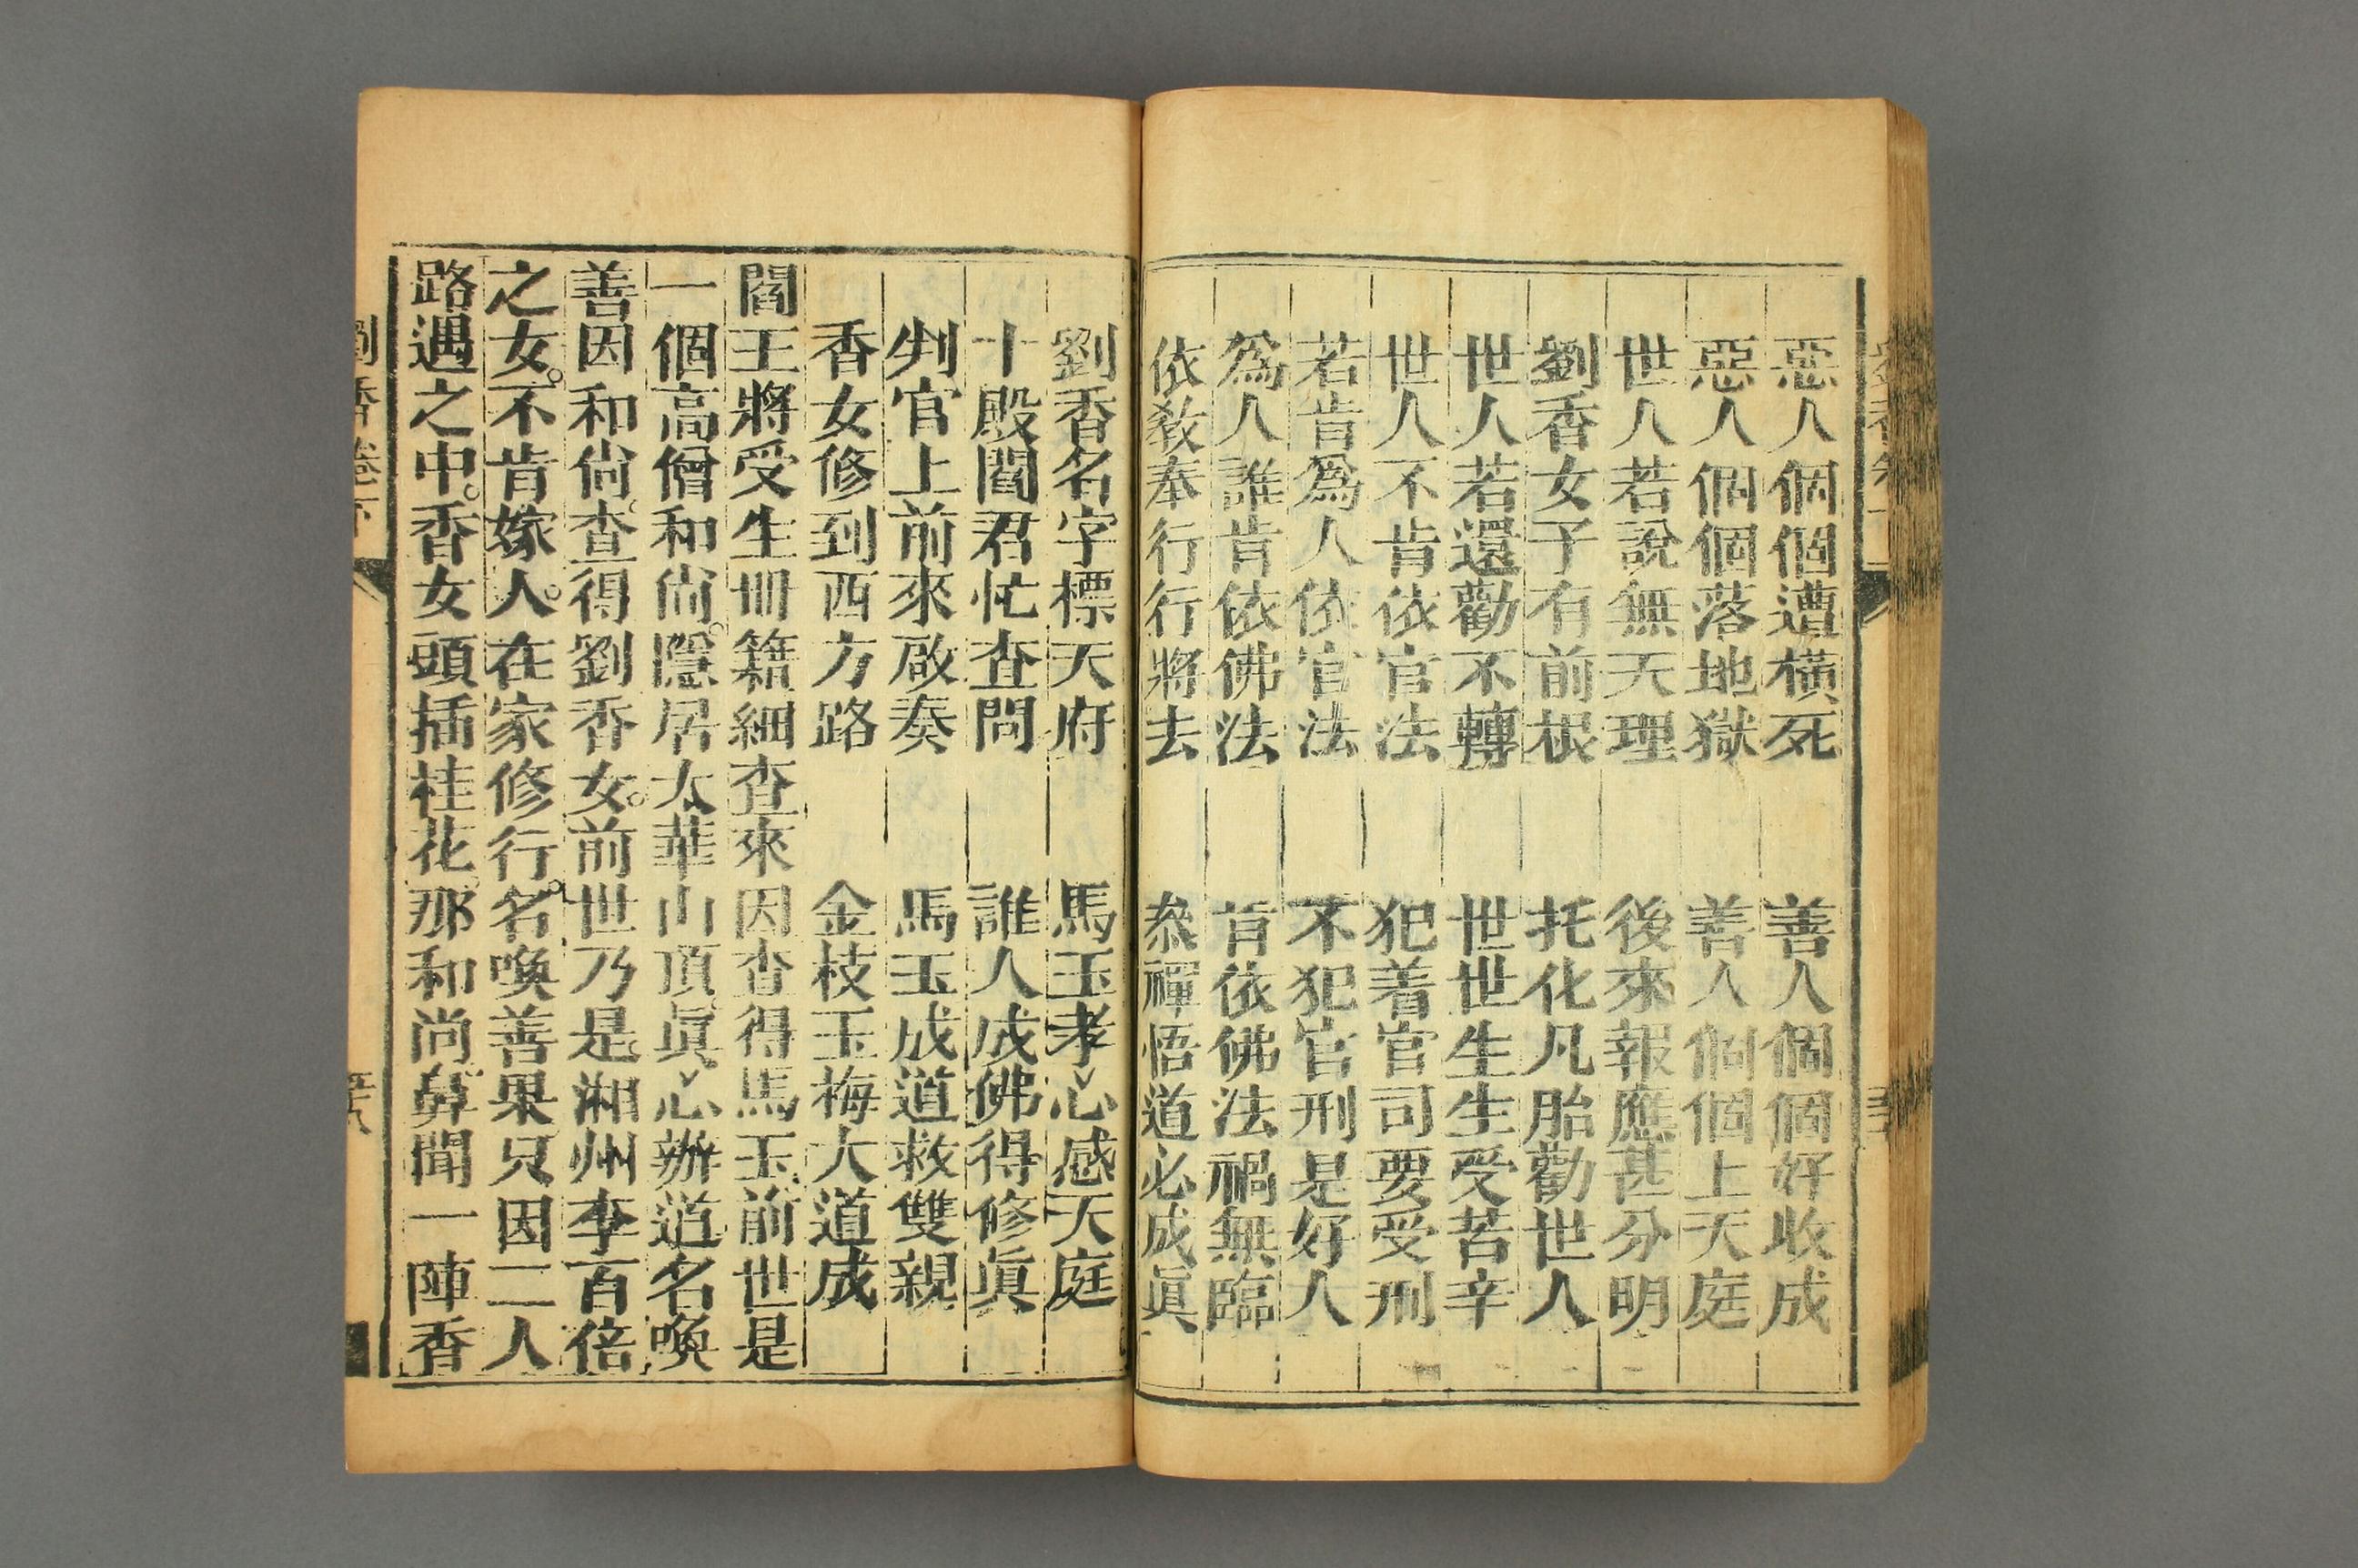 惡人個個遭橫死　善人個個好收成
惡人個個落地獄　善人個個上天庭
世人若說無天理　後來報應甚分明
劉香女子有前根　托化凡胎勸世人
世人若還勸不轉　世世生生受苦辛
世人不肯依官法　犯着官司要受刑
若肯爲人依官法　不犯官刑是好人
爲人誰肯依佛法　肯依佛法禍無臨
依教奉行行將去　叅禪悟道必成眞
劉香名字標天府　馬玉孝心感天庭
十殿閻君忙查問　誰人成佛得修眞
判官上前來啟奏　馬玉成道救雙親
香女修到西方路　金枝玉梅大道成
閻王將受生冊籍細查來因查得馬玉前世是
一個高僧和尚。隱居太華山頂。眞心辦道名喚
善因和尚。查得劉香女。前世乃是湘州李百倍
之女。不肯嫁人。在家修行。名喚善果只因二人
路遇之中。香女頭插桂花。那和尚鼻聞一陣香
劉香卷下